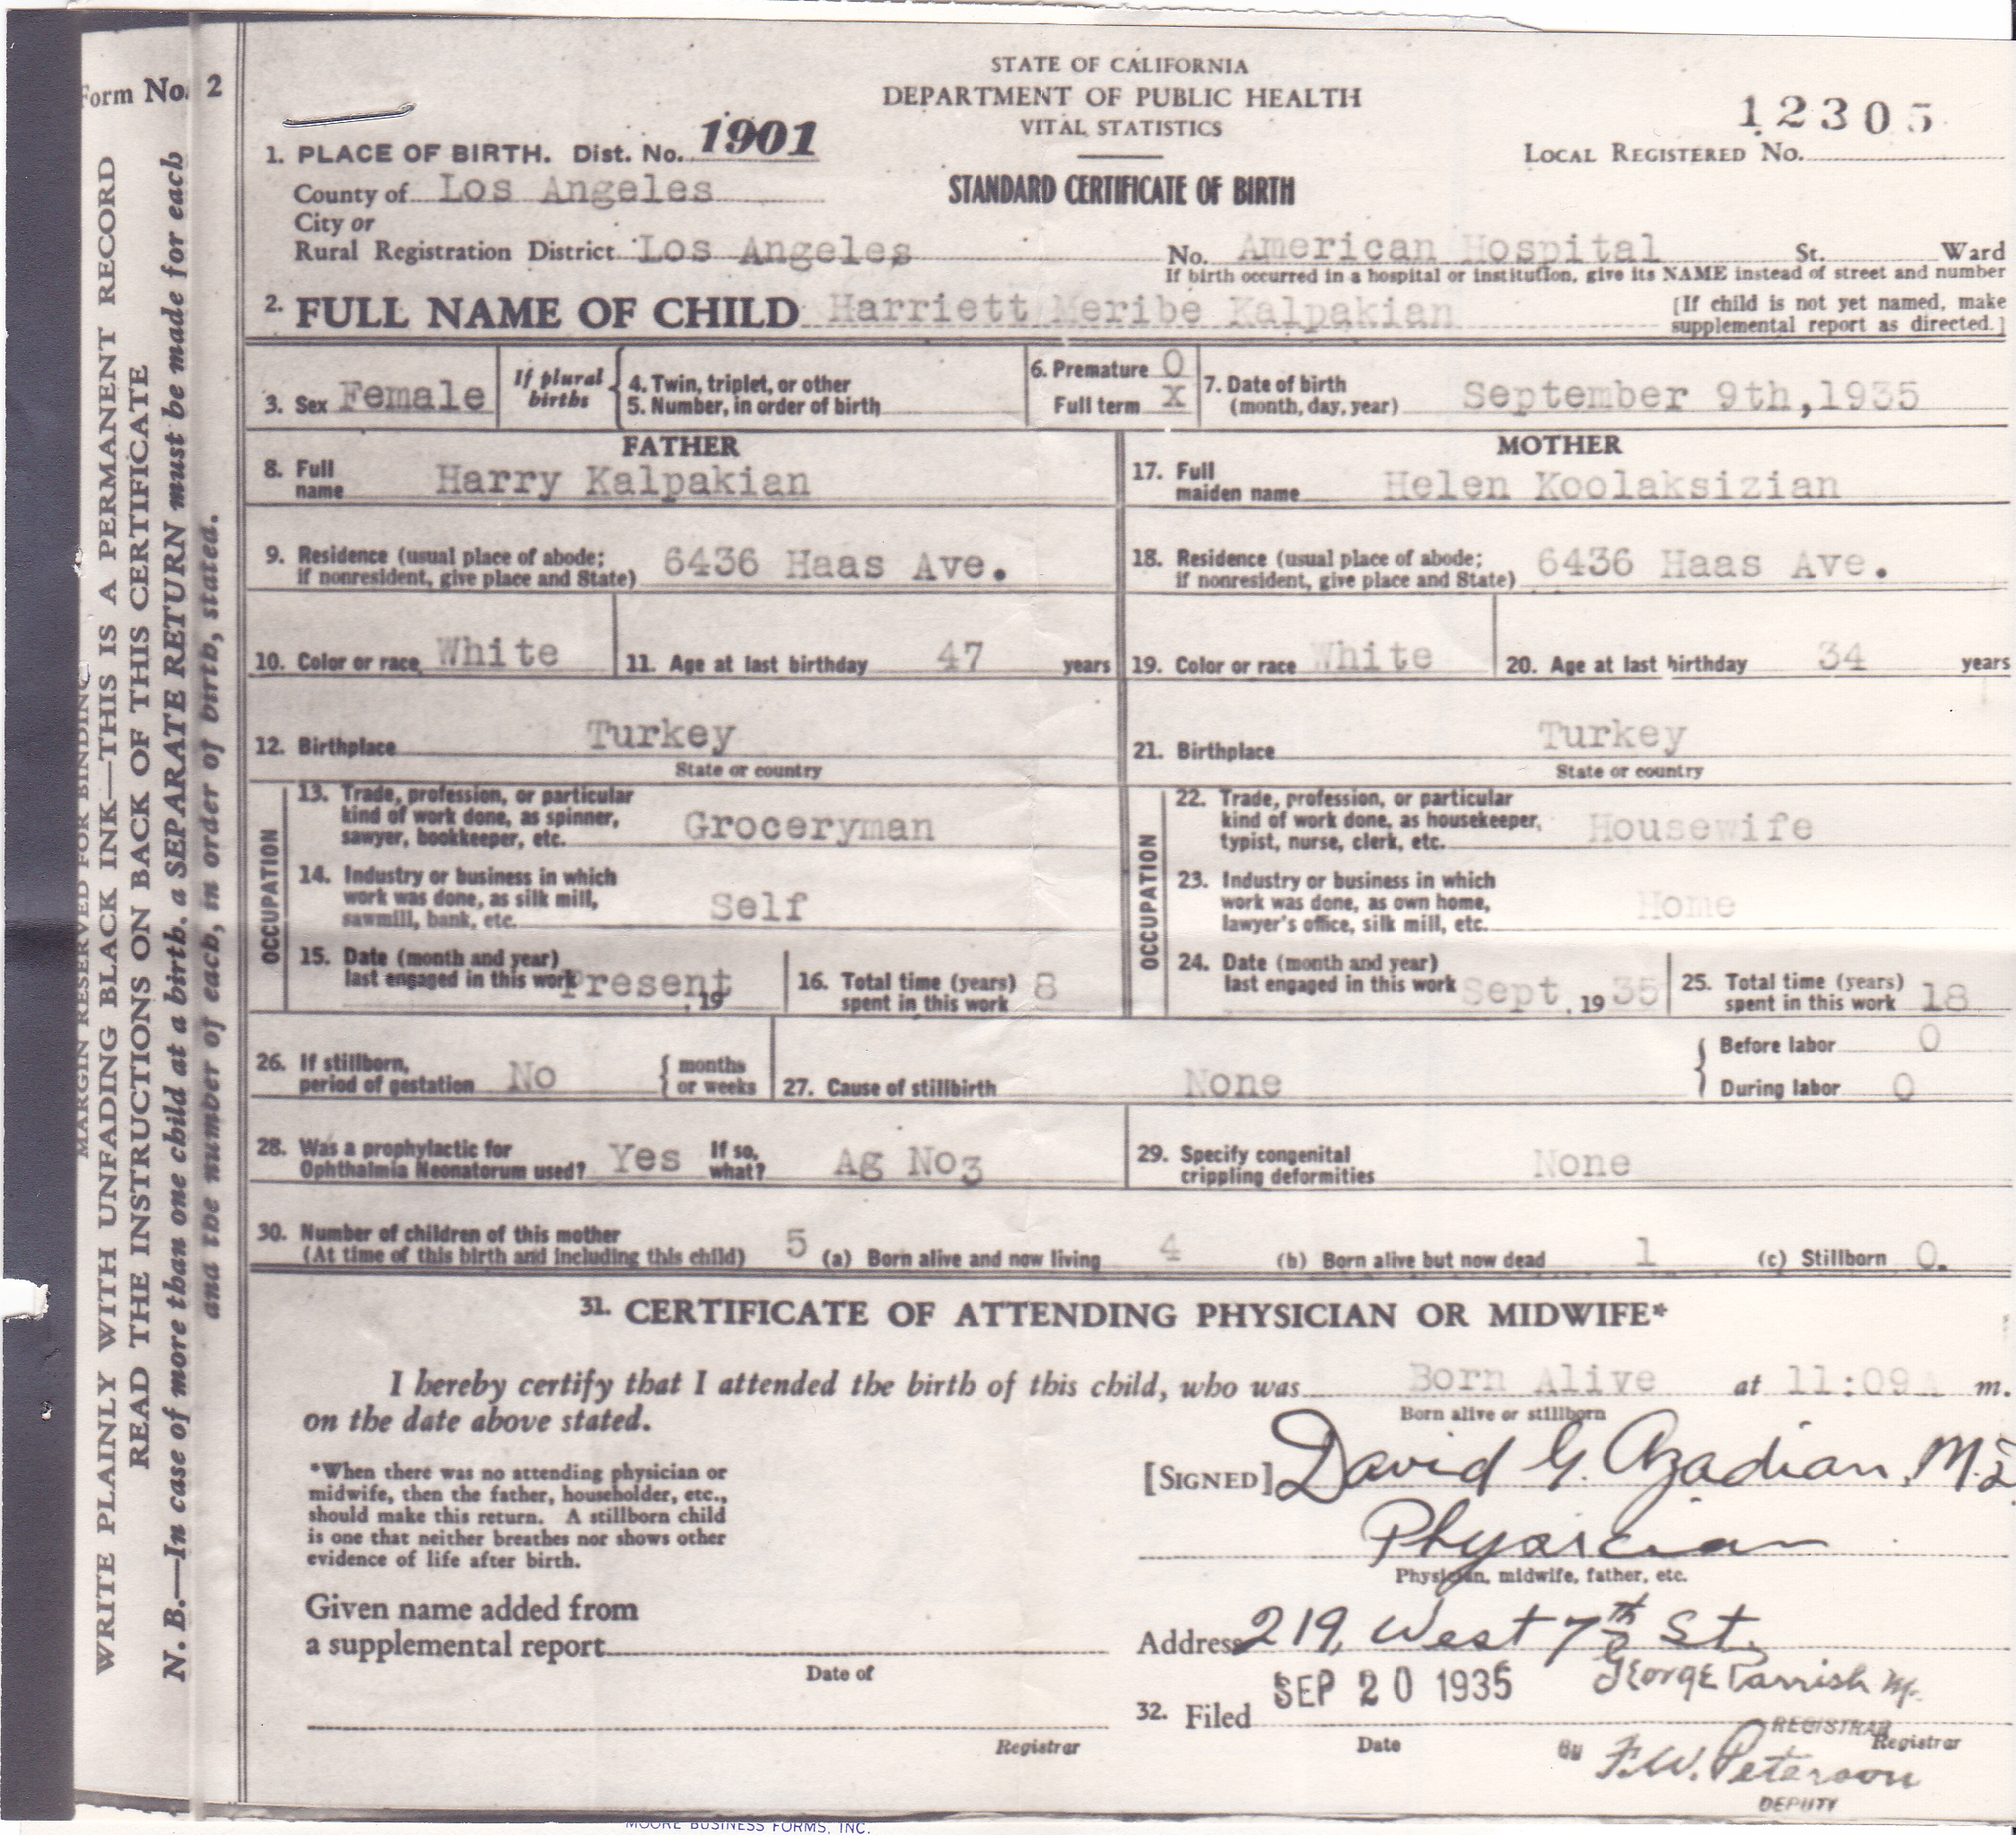 Form No. 2
MARGIN RESERVED FOR BINDING
WRITE PLAINLY WITH UNFADING BLACK INK—THIS IS A PERMANENT RECORD
READ THE INSTRUCTIONS ON BACK OF THIS CERTIFICATE
N. B.—In case of more than one child at a birth, a SEPARATE RETURN must be made for each
and the number of each, in order of birth, stated.
STATE OF CALIFORNIA
DEPARTMENT OF PUBLIC HEALTH
VITAL STATISTICS
STANDARD CERTIFICATE OF BIRTH
12305
LOCAL REGISTERED No.
1. PLACE OF BIRTH. Dist. No. 1901
County of Los Angeles
City or
Rural Registration District Los Angeles
No. American Hospital St. Ward
If birth occurred in a hospital or institution, give its NAME instead of street and number
2. FULL NAME OF CHILD Harriett Meribe Kalpakian
[If child is not yet named, make
supplemental report as directed.]
3. Sex Female
If plural births
4. Twin, triplet, or other
5. Number, in order of birth
6. Premature 0
Full term X
7. Date of birth
(month, day, year) September 9th,1935
FATHER
8. Full
name Harry Kalpakian
9. Residence (usual place of abode;
if nonresident, give place and State) 6436 Haas Ave.
10. Color or race White
11. Age at last birthday 47 years
12. Birthplace Turkey
State or country
OCCUPATION
13. Trade, profession, or particular
kind of work done, as spinner,
sawyer, bookkeeper, etc. Groceryman
14. Industry or business in which
work was done, as silk mill,
sawmill, bank, etc. Self
15. Date (month and year)
last engaged in this work Present, 19
16. Total time (years)
spent in this work 8
MOTHER
17. Full
maiden name Helen Koolaksizian
18. Residence (usual place of abode;
if nonresident, give place and State) 6436 Haas Ave.
19. Color or race White
20. Age at last birthday 34 years
21. Birthplace Turkey
State or country
OCCUPATION
22. Trade, profession, or particular
kind of work done, as housekeeper,
typist, nurse, clerk, etc. Housewife
23. Industry or business in which
work was done, as own home,
lawyer's office, silk mill, etc. Home
24. Date (month and year)
last engaged in this work Sept, 19 35
25. Total time (years)
spent in this work 18
26. If stillborn,
period of gestation No { months
or weeks
27. Cause of stillbirth None
{ Before labor 0
During labor 0
28. Was a prophylactic for
Ophthalmia Neonatorum used? Yes If so, what? Ag No3
29. Specify congenital
crippling deformities None
30. Number of children of this mother
(At time of this birth and including this child) 5 (a) Born alive and now living 4 (b) Born alive but now dead 1 (c) Stillborn 0.
31. CERTIFICATE OF ATTENDING PHYSICIAN OR MIDWIFE*
I hereby certify that I attended the birth of this child, who was Born Alive at 11:09A m.
Born alive or stillborn
on the date above stated.
*When there was no attending physician or
midwife, then the father, householder, etc.,
should make this return. A stillborn child
is one that neither breathes nor shows other
evidence of life after birth.
[SIGNED] David G. Azadian, M.D.
Physician
Physician, midwife, father, etc.
Given name added from
a supplemental report
Date of
Registrar
Address 219 West 7th St.
32. Filed SEP 20 1935 George Parrish
Date
REGISTRAR
Registrar
By F.W. Peterson
DEPUTY
MOORE BUSINESS FORMS, INC.